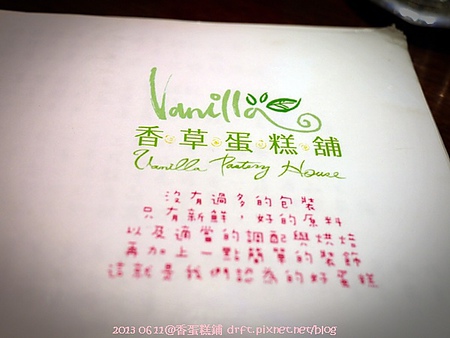 Vanilla
香草蛋糕舖
Vanilla Pastery House
沒有過多的包裝
只有新鮮，好的原料
以及適當的調配與烘焙
再加上一點簡單的裝飾
這就是我們認為的好蛋糕
2013 0622@香蛋糕鋪 drft.pixnet.net/blog